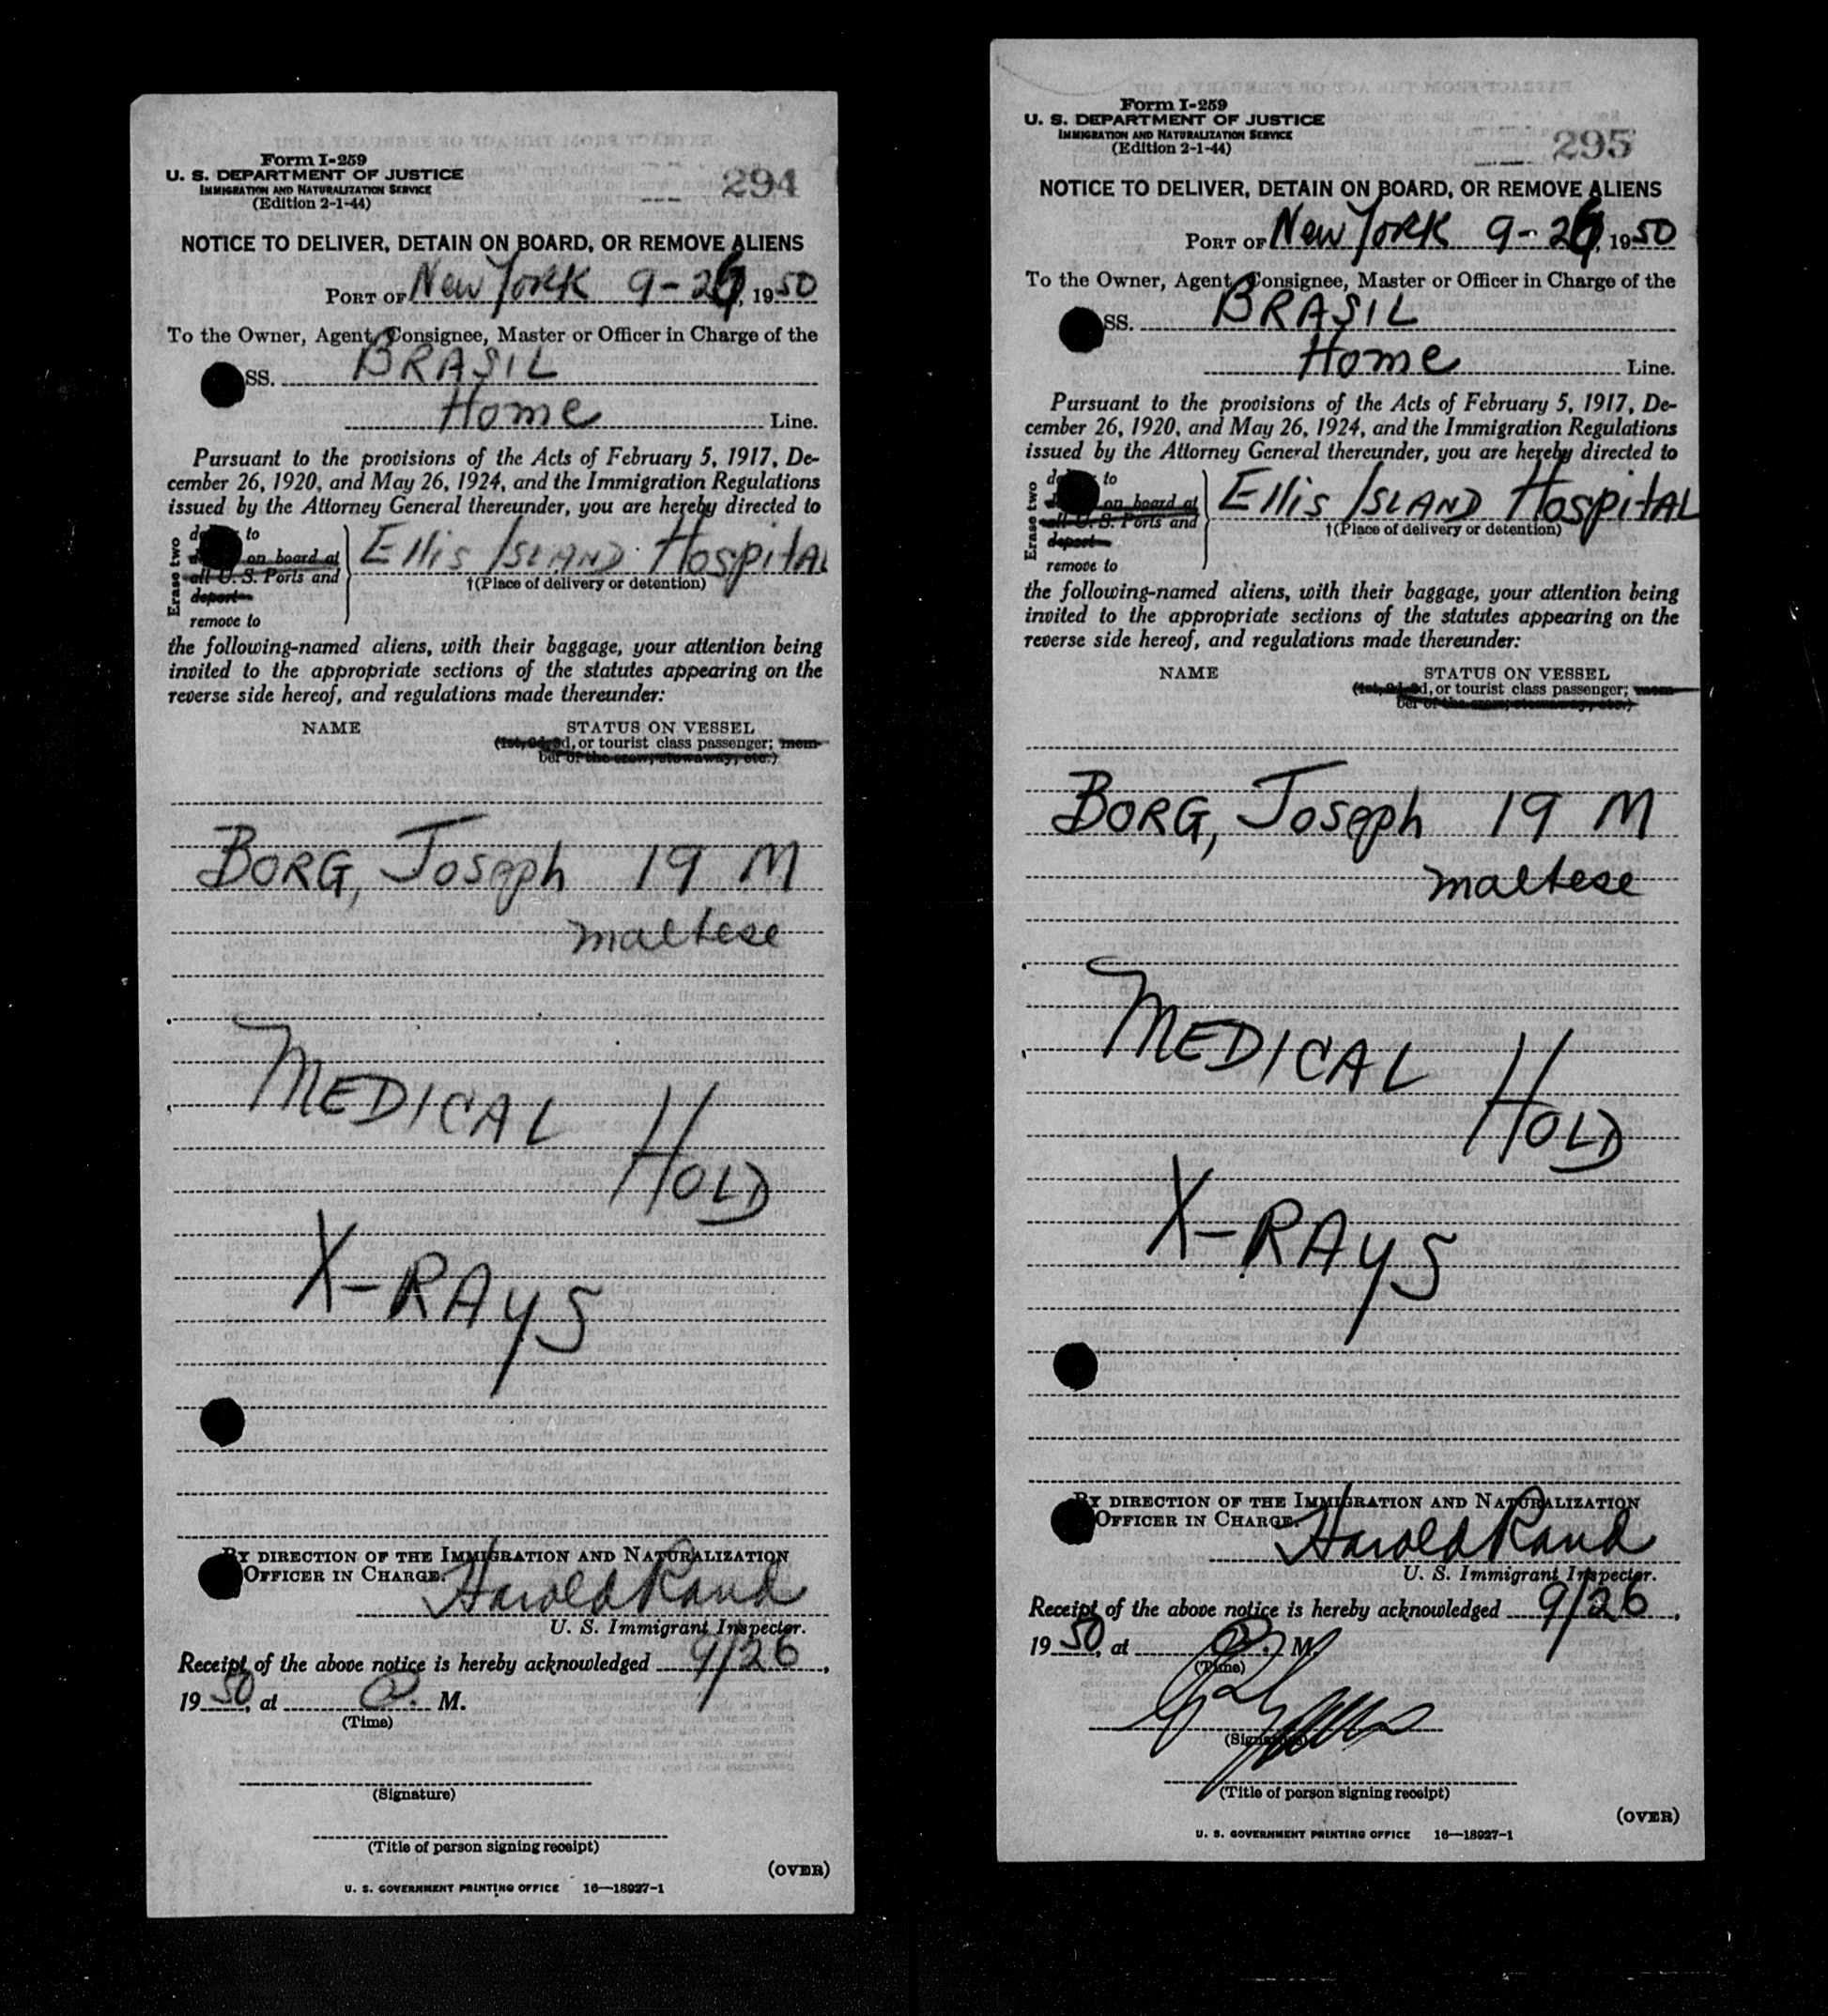 Form I-259
U. S. DEPARTMENT OF JUSTICE
IMMIGRATION AND NATURALIZATION SERVICE
(Edition 2-1-44)
294
NOTICE TO DELIVER, DETAIN ON BOARD, OR REMOVE ALIENS
PORT OF New York 9-26, 1950
To the Owner, Agent, Consignee, Master or Officer in Charge of the
SS. BRASIL
Home Line.
Pursuant to the provisions of the Acts of February 5, 1917, De-
cember 26, 1920, and May 26, 1924, and the Immigration Regulations
issued by the Attorney General thereunder, you are hereby directed to
Erase two
to
on board at
all U. S. Ports and
deport
remove to
Ellis ISLAND Hospital
†(Place of delivery or detention)
the following-named aliens, with their baggage, your attention being
invited to the appropriate sections of the statutes appearing on the
reverse side hereof, and regulations made thereunder:
NAME STATUS ON VESSEL
(1st, 2d, 3d, or tourist class passenger; mem-
ber of the crew, stowaway, etc.)
BORG, Joseph 19 M
maltese
MEDICAL HOLD
X-RAYS
BY DIRECTION OF THE IMMIGRATION AND NATURALIZATION
OFFICER IN CHARGE.
Harold Rand
U. S. Immigrant Inspector.
Receipt of the above notice is hereby acknowledged 9/26,
1950, at M.
(Time)
(Signature)
(Title of person signing receipt)
(OVER)
U. S. GOVERNMENT PRINTING OFFICE 16—18927-1
Form I-259
U. S. DEPARTMENT OF JUSTICE
IMMIGRATION AND NATURALIZATION SERVICE
(Edition 2-1-44)
295
NOTICE TO DELIVER, DETAIN ON BOARD, OR REMOVE ALIENS
PORT OF New York 9-26, 1950
To the Owner, Agent, Consignee, Master or Officer in Charge of the
SS. BRASIL
Home Line.
Pursuant to the provisions of the Acts of February 5, 1917, De-
cember 26, 1920, and May 26, 1924, and the Immigration Regulations
issued by the Attorney General thereunder, you are hereby directed to
Erase two
to
on board at
all U. S. Ports and
deport
remove to
Ellis ISLAND HospitAL
†(Place of delivery or detention)
the following-named aliens, with their baggage, your attention being
invited to the appropriate sections of the statutes appearing on the
reverse side hereof, and regulations made thereunder:
NAME STATUS ON VESSEL
(1st, 2d, 3d, or tourist class passenger; mem-
ber of the crew, stowaway, etc.)
BORG, Joseph 19 M
maltese
MEDICAL HOLD
X-RAYS
BY DIRECTION OF THE IMMIGRATION AND NATURALIZATION
OFFICER IN CHARGE.
Harold Rand
U. S. Immigrant Inspector.
Receipt of the above notice is hereby acknowledged 9/26,
1950, at M.
(Time)
(Signature)
(Title of person signing receipt)
(OVER)
U. S. GOVERNMENT PRINTING OFFICE 16—18927-1